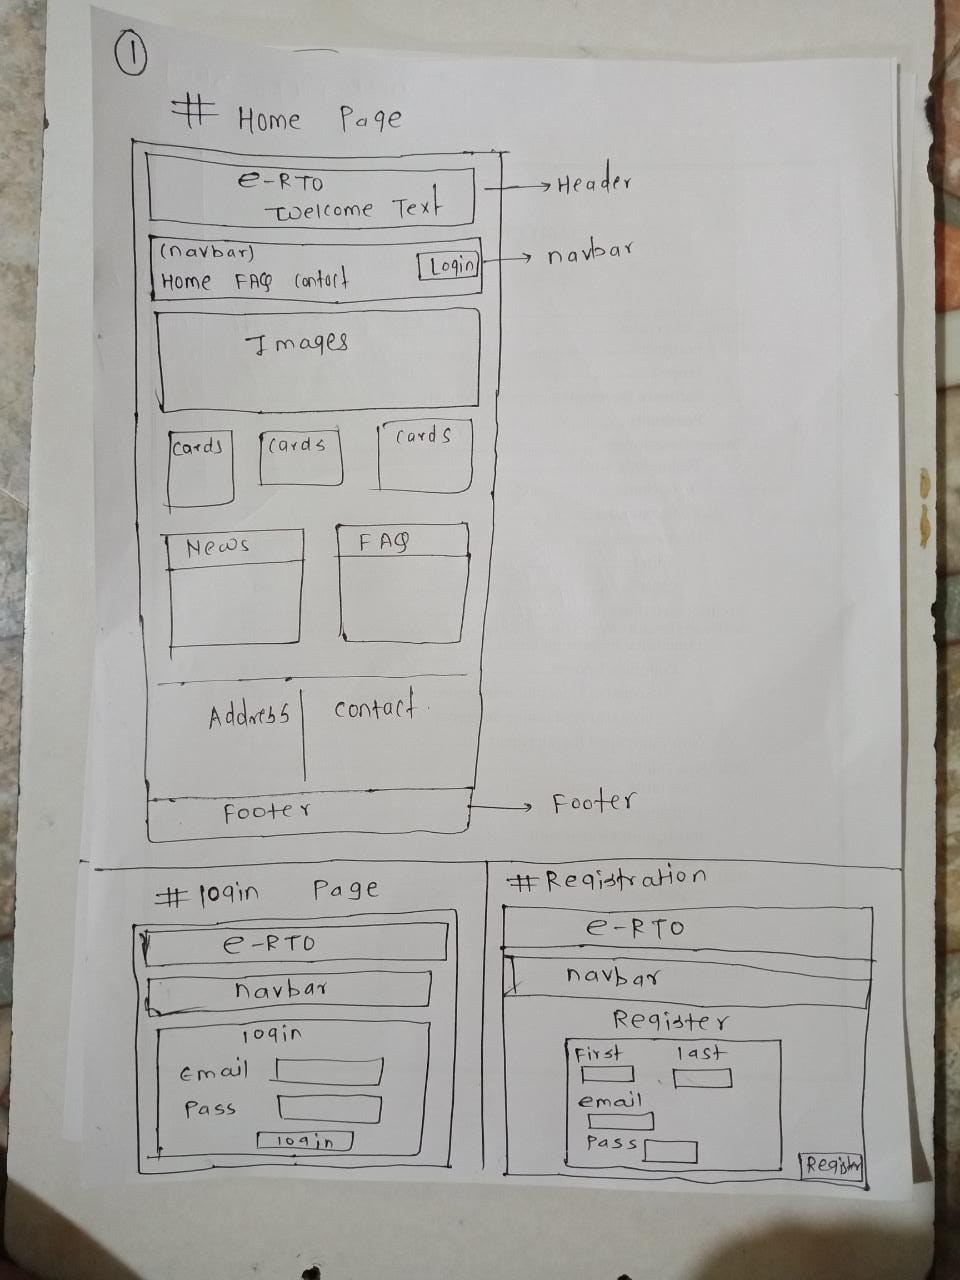 1
# Home Page
e-RTO
Welcome Text
Header
(navbar)
Home FAQ Contact
Login
navbar
Images
Cards Cards Cards
News FAQ
Address contact.
Footer
Footer
# login Page
e-RTO
navbar
login
Email
Pass
login
# Registration
e-RTO
navbar
Register
First last
email
Pass
Register